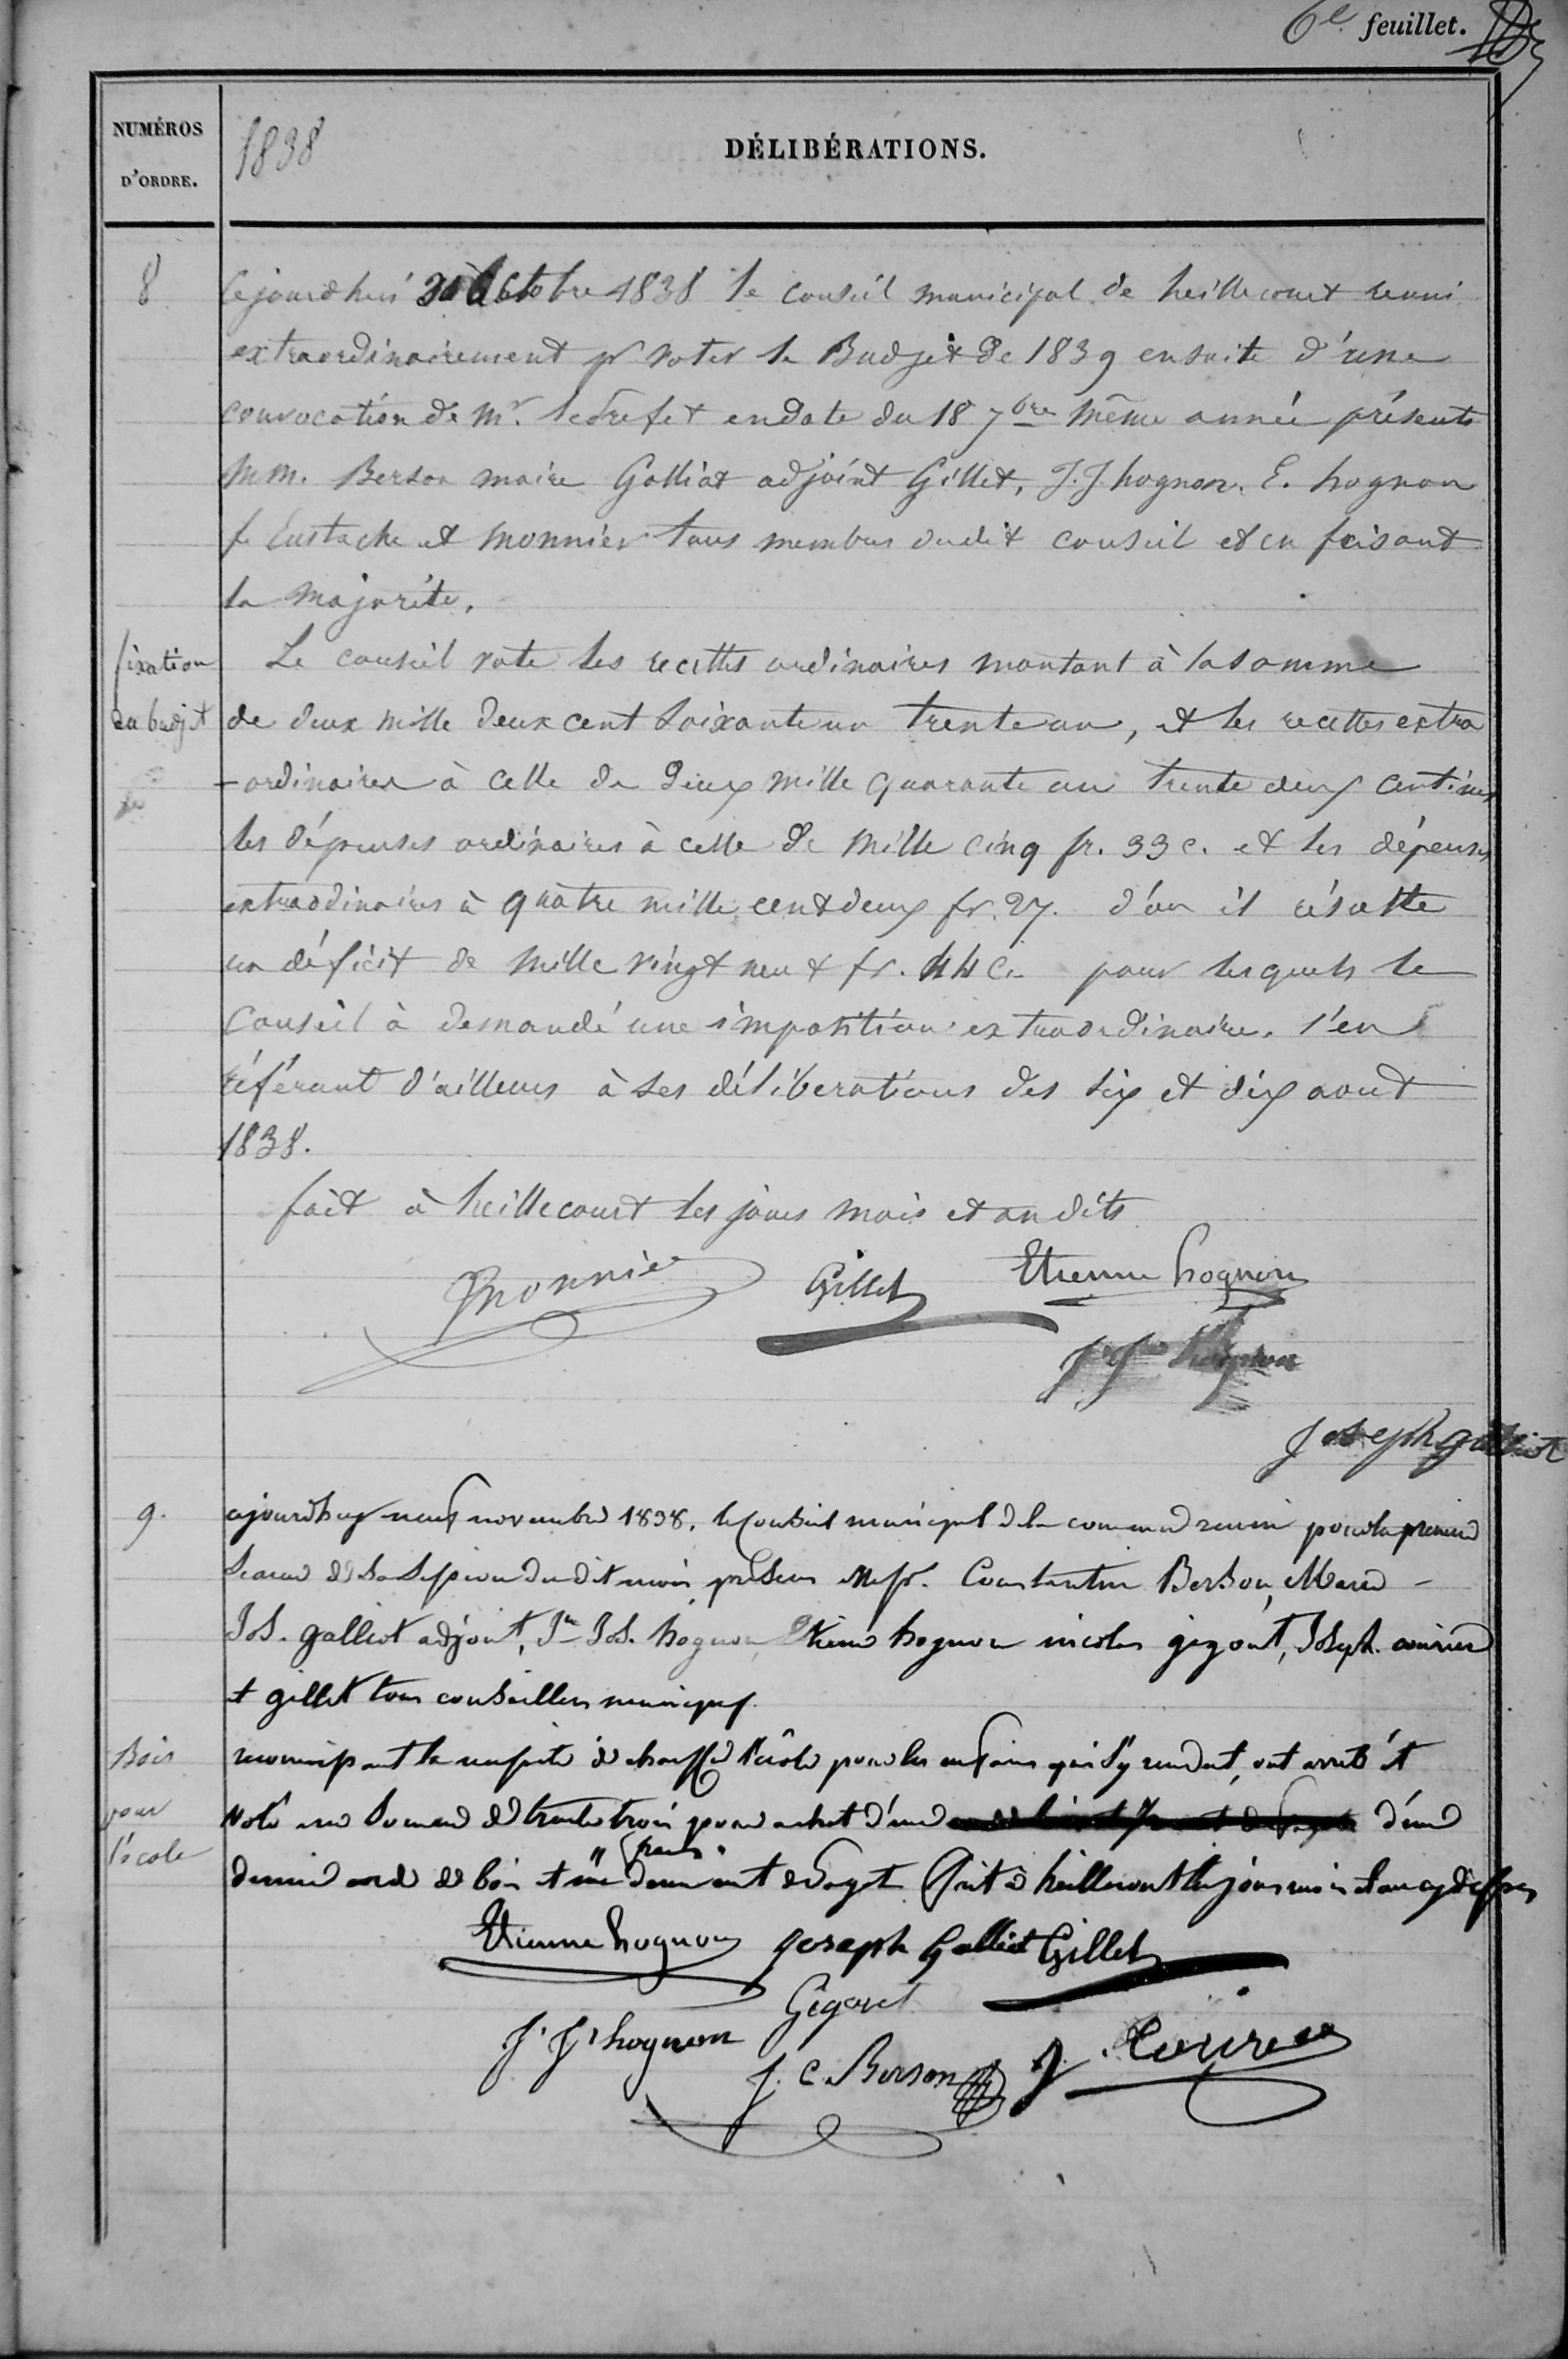 6e feuillet.
NUMÉROS
D'ORDRE.
1838
DÉLIBÉRATIONS.
8
Cejourdhui 30 Octobre 1838 le conseil municipal de heillecourt reuni
extraordinairement pr voter le Budjet de 1839 ensuite d'une
convocation de Mr. le Prefet en date du 18 7bre même année présents
MM. Berson maire Galliot adjoint Gillet, J. J hognon. E. hognon
f. Eustache et Monnier tous membres dudit conseil et en faisant
la majorité.
fixation
du budjet
Le conseil vote les recettes ordinaires montant à la somme
de deux mille deux cent soixante un trente un, et les recettes extra
-ordinaires à celle de deux mille quarante un trente deux centimes
les dépenses ordinaires à celle de mille cinq fr. 33 c. et les dépenses
extraodinaires à quatre mille cent deux fr. 27. d'ou il résulte
un déficit de mille vingt neuf fr. 44 C. pour lesquels le
Conseil à demandé une imposition extraordinaire. s'en
référant d'ailleurs à ses déliberations des six et dix aout
1838.
fait à heillecourt les jours mois et an dits
Monnier Gillet Etienne hognon
J J hognon
Joseph galliot
9.
ajourdhuy neuf novembre 1838. le Conseil municipal de la commune reuni pour la premiere
séance de sa session du dit mois, présens Mess. Constantin Berson, Maire
Jos. galliot adjoint, Jn Jos. hognon, Etienne hognon nicolas gigout, Joseph
et gillet tous conseillers municipaux.
Bois
pour
l'école
reconnaissant la necessité de chauffer l'école pour les enfans qui s'y rendent, ont arreté et
voté une somme de trente trois pour achat d'une d'une
francs
demie corde de bois et un demi cent de fagot fait à heillecourt les jours mois et an cy dessus
Etienne hognon Joseph Galliot Gillet
Gigout
J. J. hognon
J. C. Berson J.